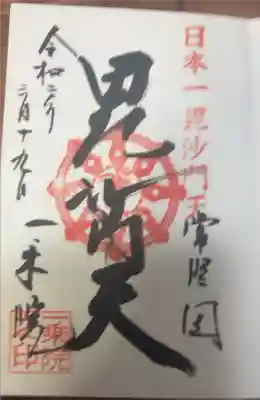 日本一毘沙門天
常陸国
毘沙門天
令和二年
二月十九日
一乗院
一乗院印